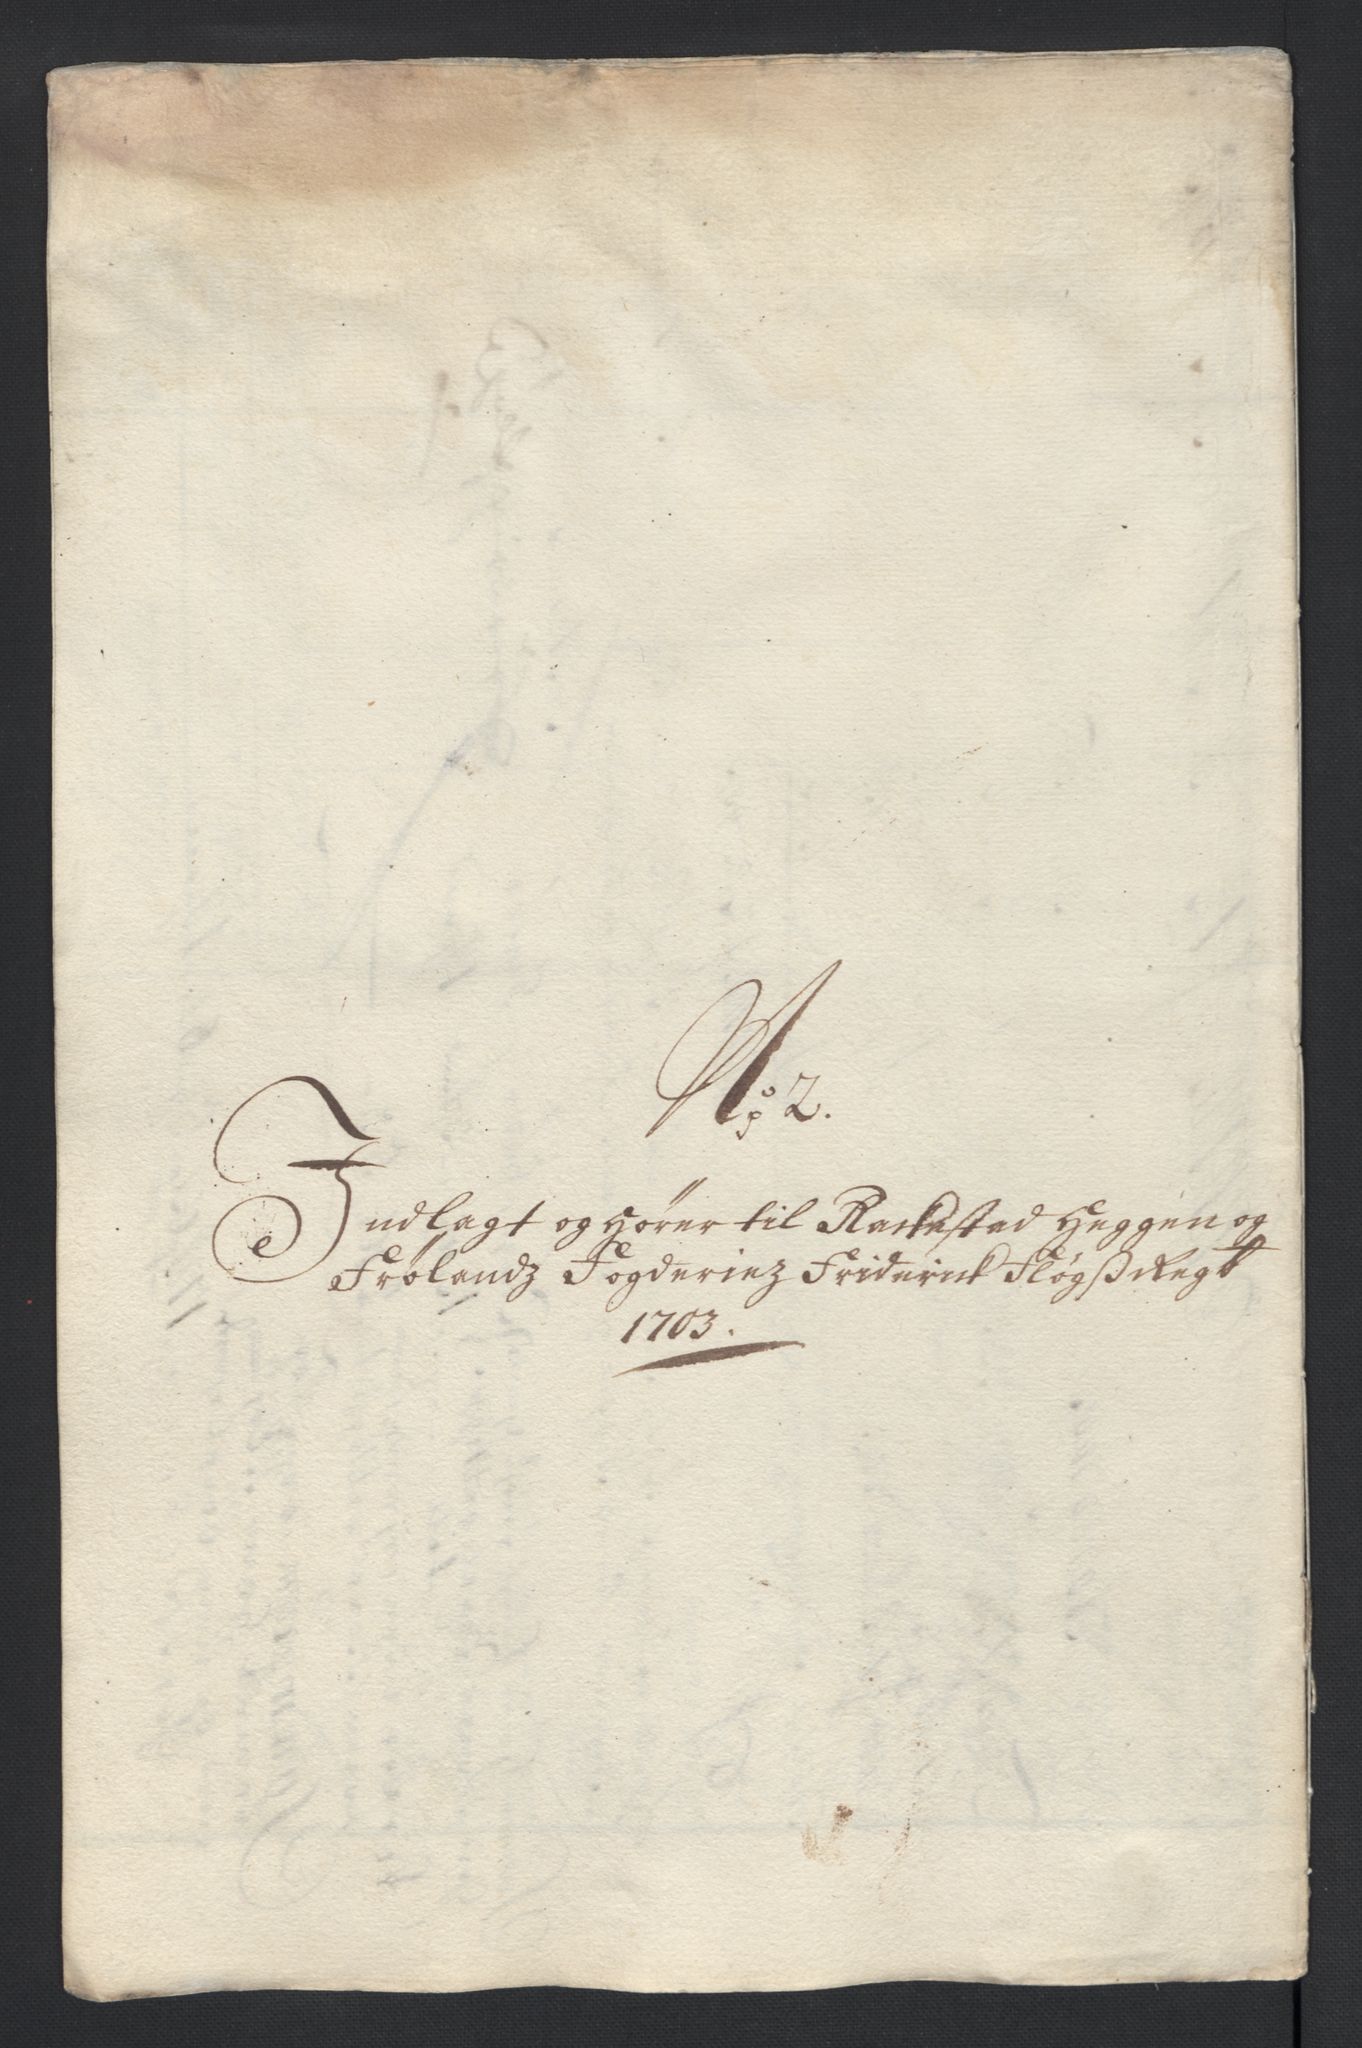 No 2.
Indlagt og hører til Rackestad Heggen og
Frølandz Fogderiez Friderick Fløgß Regt
1703.